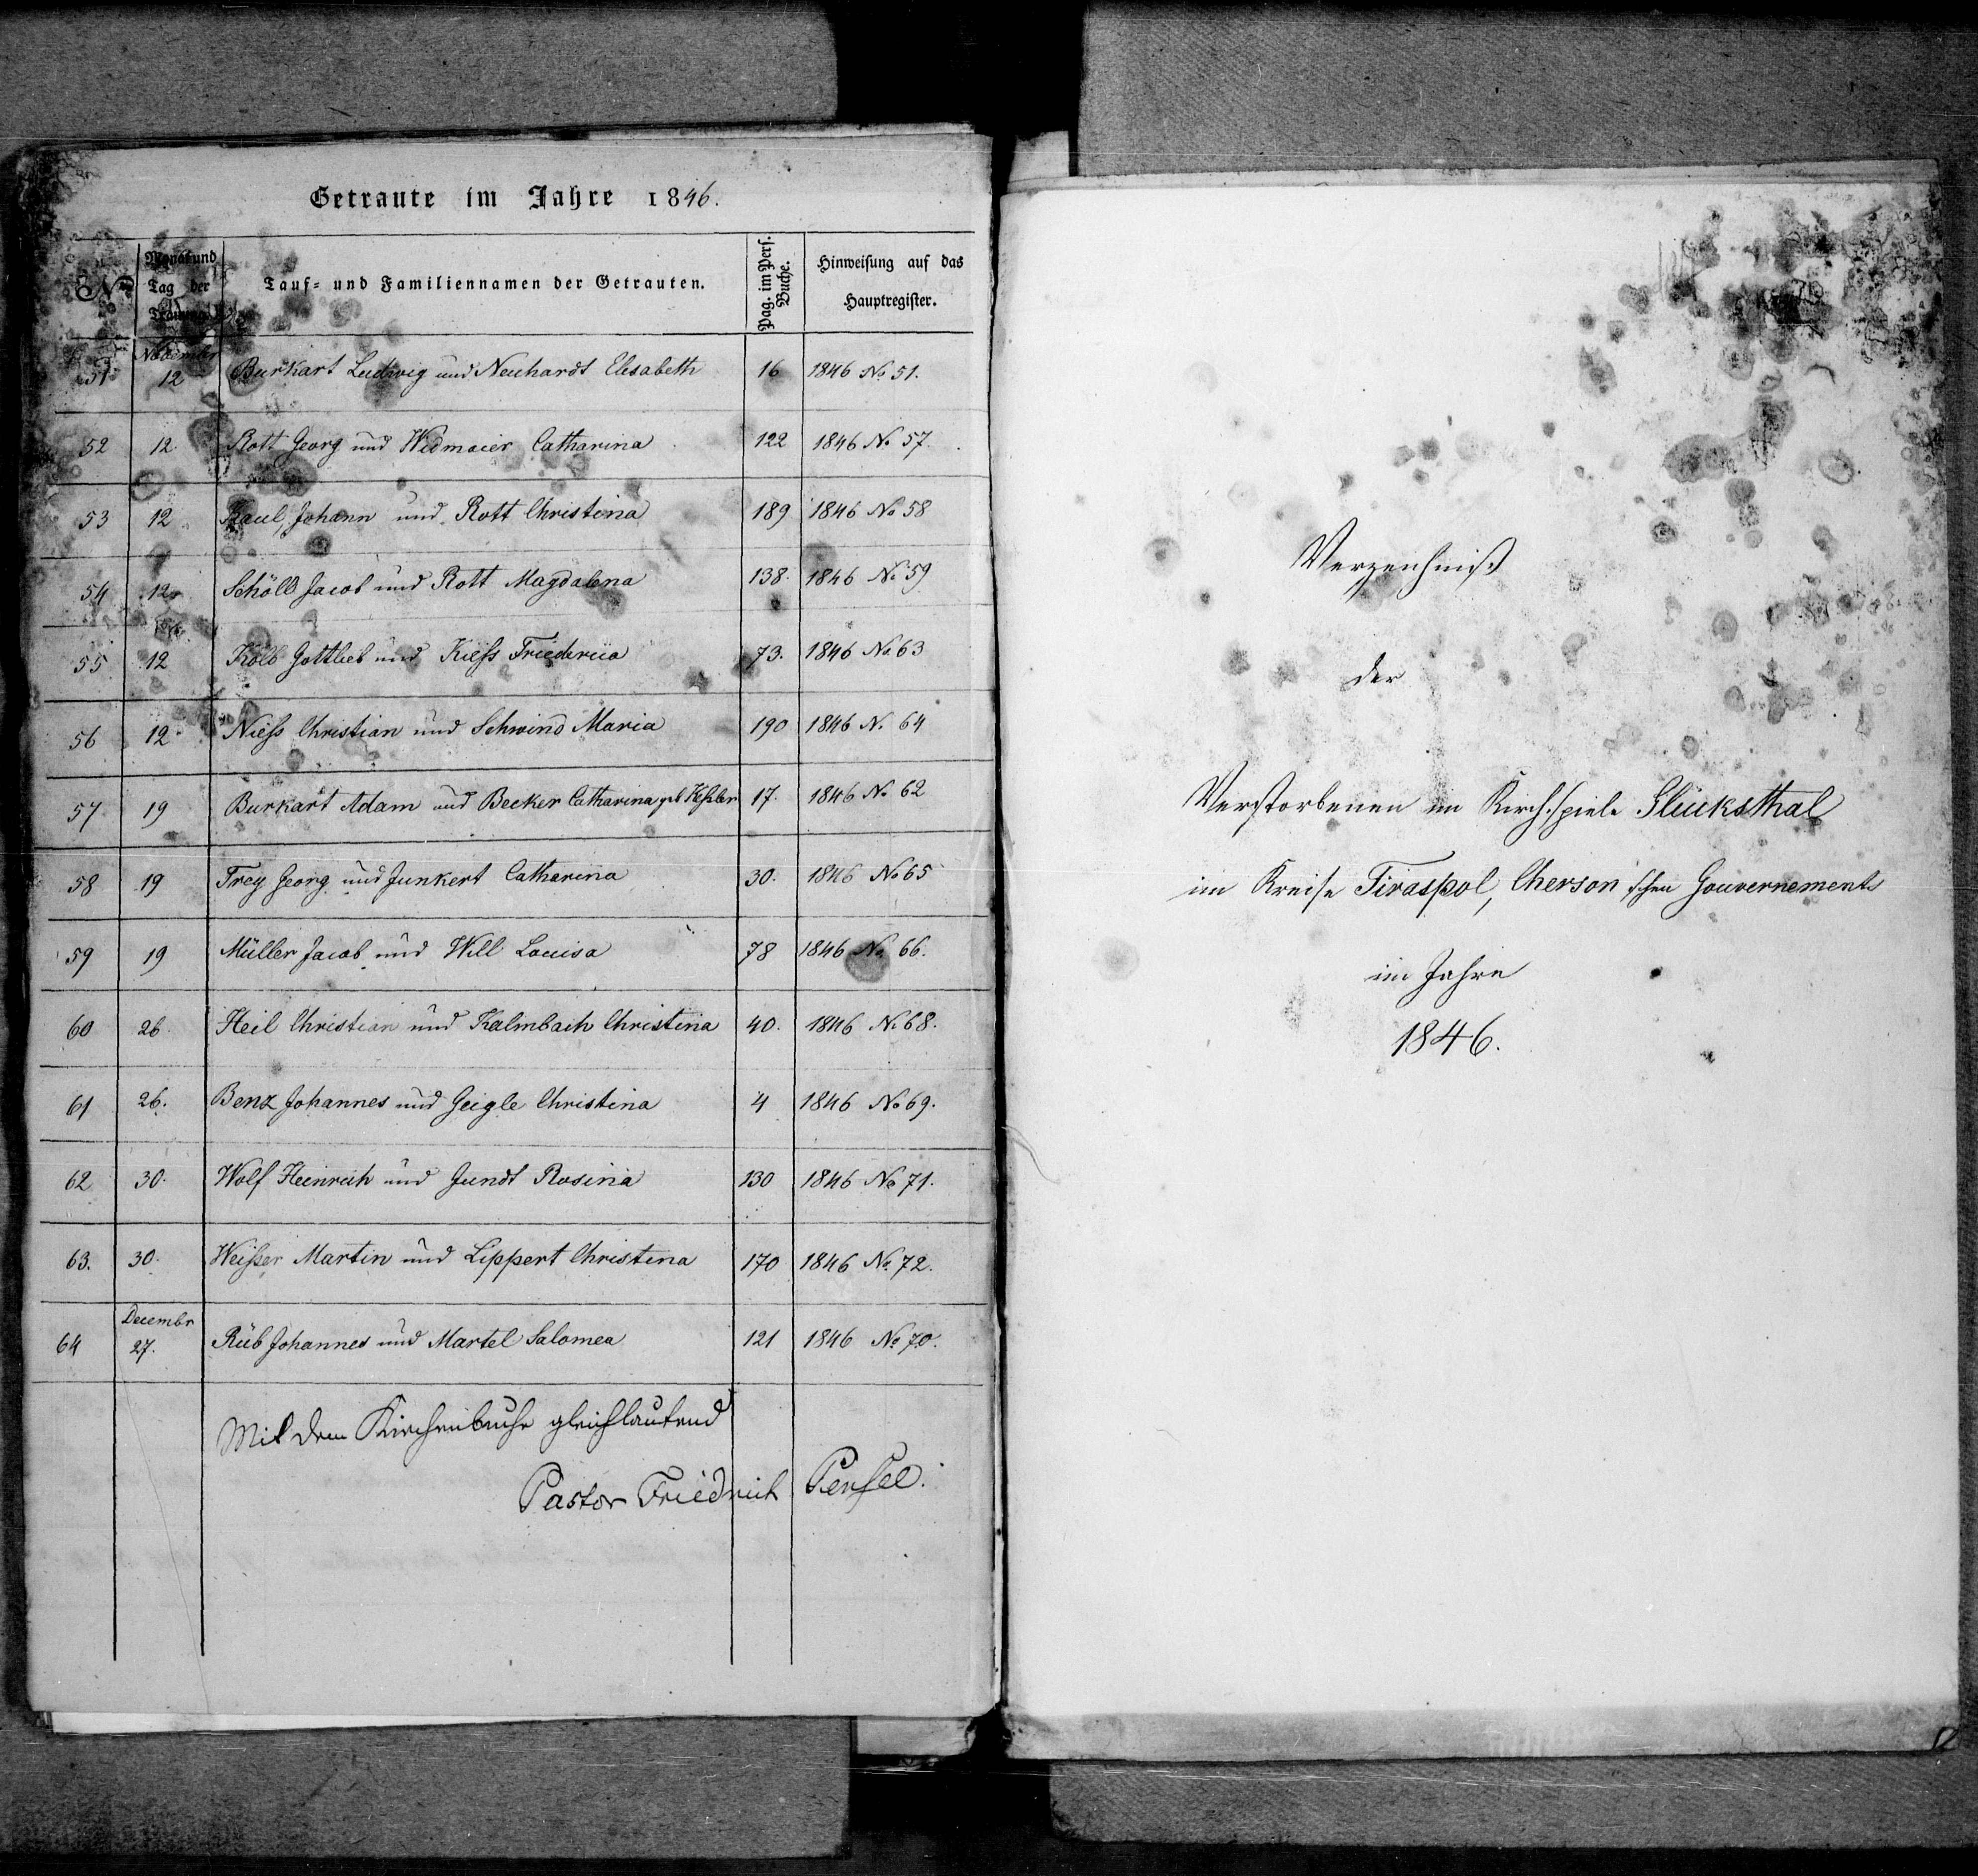 Getraute im Jahre 1846.
No Monat und Tag der Trauung. Tauf- und Familiennamen der Getrauten. Pag. im Pers. Buche. Hinweisung auf das Hauptregister.
51 November 12 Burkart Ludwig und Neuhardt Elisabeth 16 1846 No 51.
52 12 Rott Georg und Widmaier Catharina 122 1846 No 57.
53 12 Johann und Rott Christina 189 1846 No 58
54 12 Schöll Jacob und Rott Magdalena 138. 1846 No 59
55 12 Kolb Gottlieb und Kiess Friederica 73. 1846 No 63
56 12 Niess Christian und Schwind Maria 190 1846 N. 64
57 19 Burkart Adam und Becker Catharina geb Kessler 17. 1846 No 62
58 19 Frey Georg und Junkert Catharina 30. 1846 No 65
59 19 Müller Jacob und Will Louisa 78 1846 No 66.
60 26. Heil Christian und Kalmbach Christina 40. 1846 No 68.
61 26. Benz Johannes und Geigle Christina 4 1846 No 69.
62 30. Wolf Heinrich und Gundt Rosina 130 1846 No 71.
63. 30. Weisser Martin und Lippert Christina 170 1846 No 72.
64 Decembr 27. Rüb Johannes und Martel Salomea 121 1846 No 70.
Mit dem Kirchenbuche gleichlautend
Pastor Friedrich Pensel.
Verzeichniß
der
Verstorbenen im Kirchspiele Glücksthal
im Kreise Tiraspol, Cherson'schen Gouvernements
im Jahre
1846.